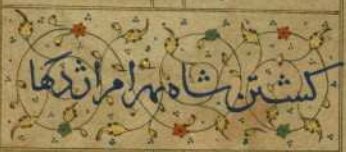 کشتن شاه بهرام اژدها را